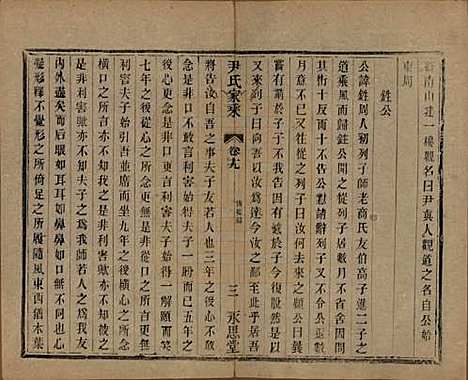 南山建一樓觀名曰尹真人觀道之名自公始
東周
鉎公
公諱鉎周人初列子師老商氏友伯高子進二子之
道乘風而歸鉎公聞之從列子居數月不省舍因閒請
其術十反而十不告鉎公懟而請辭列子又不命鉎公退數
月意不已又往從之列子曰汝何去來之頻公曰曩
嘗有請於子子不我告固有憾於子今復脫然是以
又來列子曰吾以汝爲達今汝之鄙至此乎居吾語汝
尹氏家乘
卷九
三
永思堂
將告汝自吾之事夫子友若人也三年之後心不敢
念是非口不敢言利害始得夫子一眄而已五年之
後心更念是非口更言利害夫子始得一解顏而笑
七年之後從心之所念更無是非從口之所言更無
利害夫子始一引吾並席而坐九年之後橫心之所
念橫口之所言亦不知我之是非利害歟亦不知彼之
是非利害歟亦不知夫子之爲我師若人之爲我友
內外進矣而後眼如耳耳如鼻鼻如口口無不同心
凝形釋不覺形之所倚足之所履隨風東西猶木葉